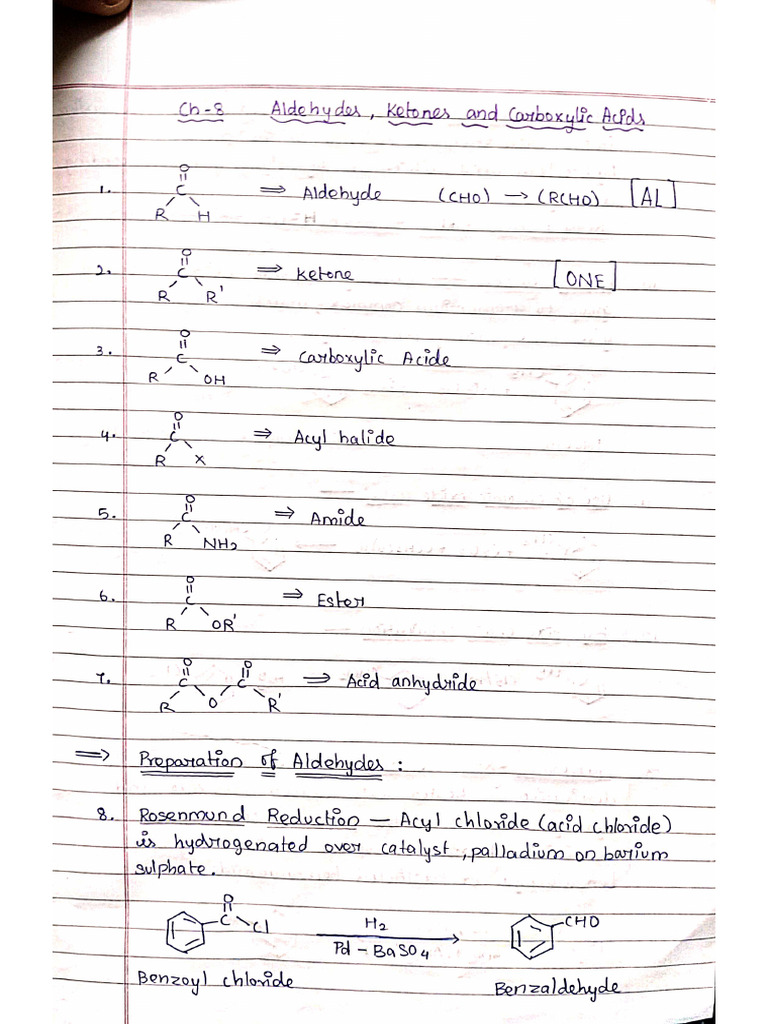 Ch-8 Aldehydes, Ketones and Carboxylic Acids
1. O
C
R H ⇒ Aldehyde (CHO) → (RCHO) [AL]
2. O
C
R R' ⇒ Ketone [ONE]
3. O
C
R OH ⇒ Carboxylic Acide
4. O
C
R X ⇒ Acyl halide
5. O
C
R NH2 ⇒ Amide
6. O
C
R OR' ⇒ Ester
7. O O
C C
R O R' ⇒ Acid anhydride
⇒ Preparation of Aldehydes :
8. Rosenmund Reduction — Acyl chloride (acid chloride)
is hydrogenated over catalyst, palladium on barium
sulphate.
O
C Cl H2 CHO
Pd - BaSO4
Benzoyl chloride Benzaldehyde